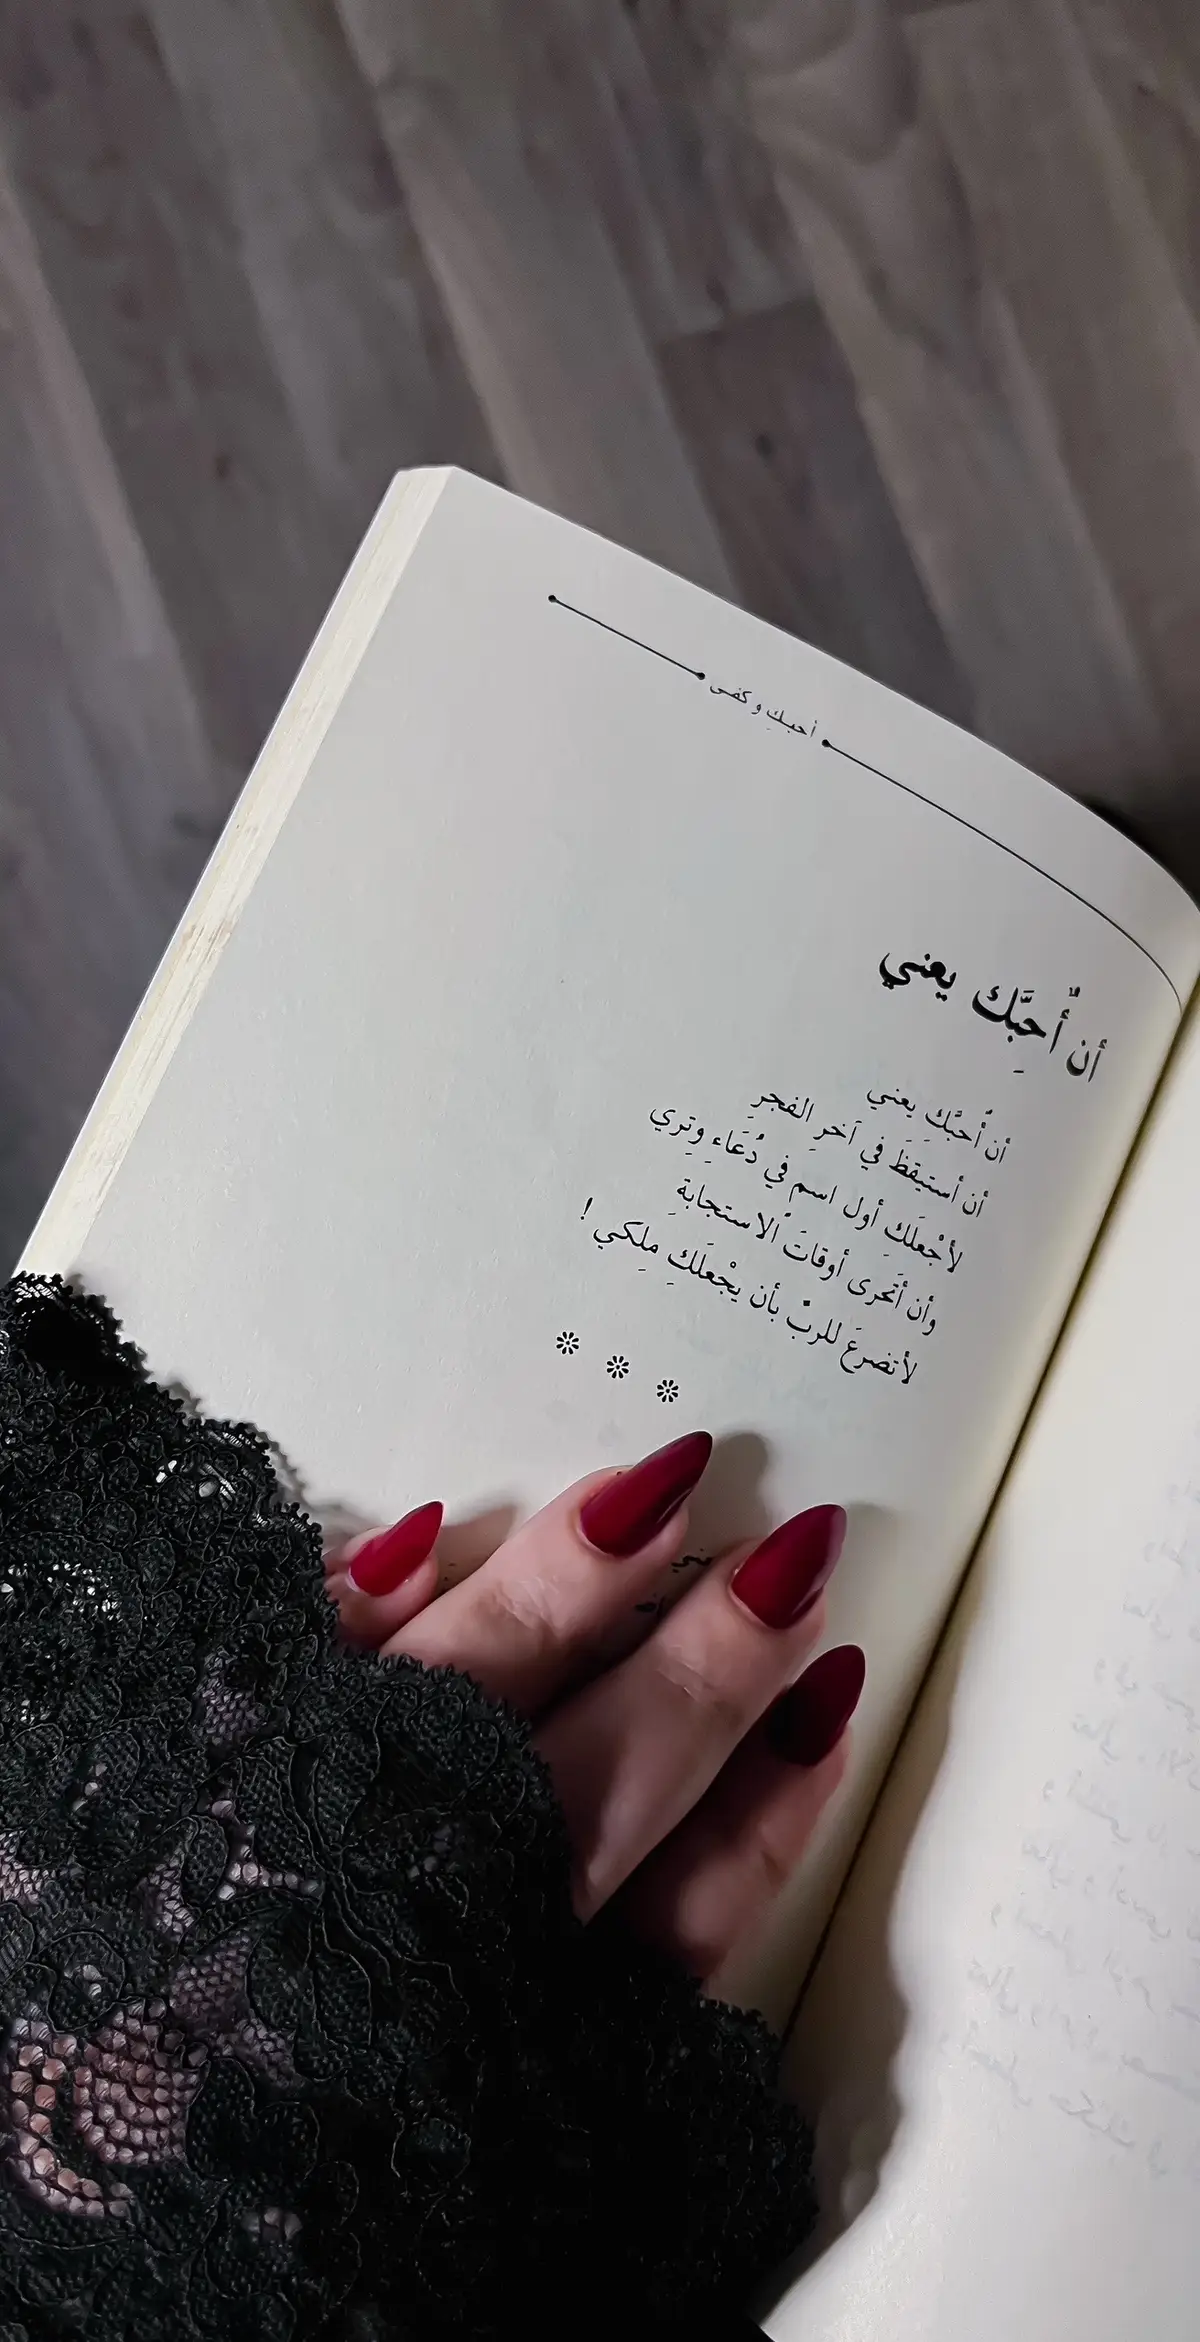 أحبكِ و كفى
أن أُحِبَّك يعني
أن أُحبَّكِ يعني
أن أستيقظَ في آخرِ الفجرِ
لأجْعلَكِ أول اسم في دُعَاءِ وِتري
وأن أتَحرى أوقاتَ الاستجابةِ
لأتضرعَ للربْ بأن يجْعلَكِ مِلكي !